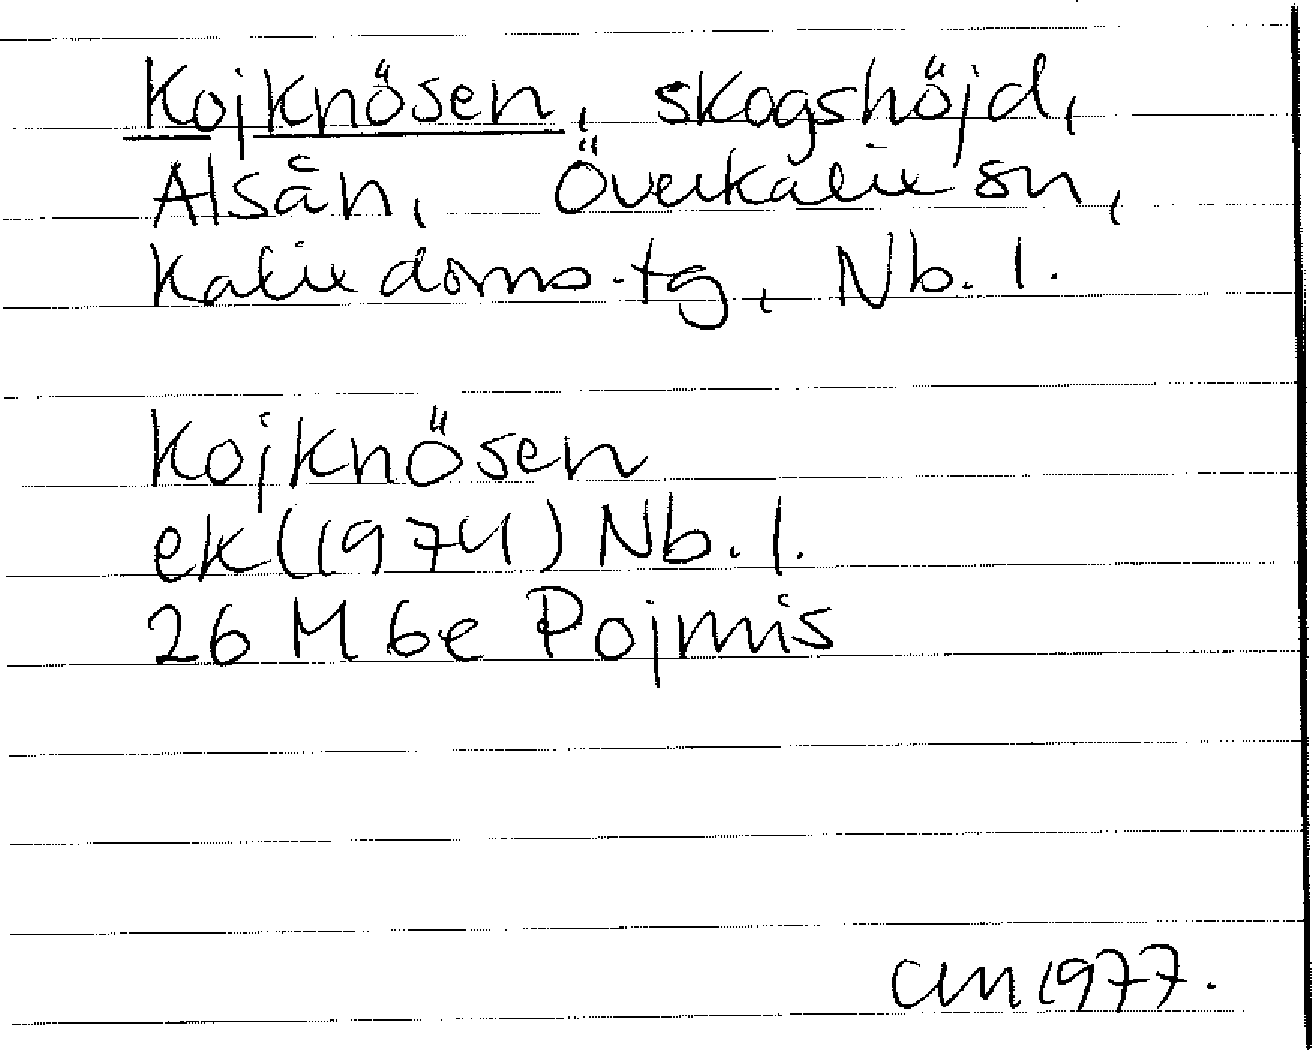 Kojknösen, skogshöjd,
Alsån, Överkalix sn,
Kalix doms.tg, Nb. l.
Kojknösen
ek (1974) Nb. l.
26 M 6e Pojmis
CM 1977.